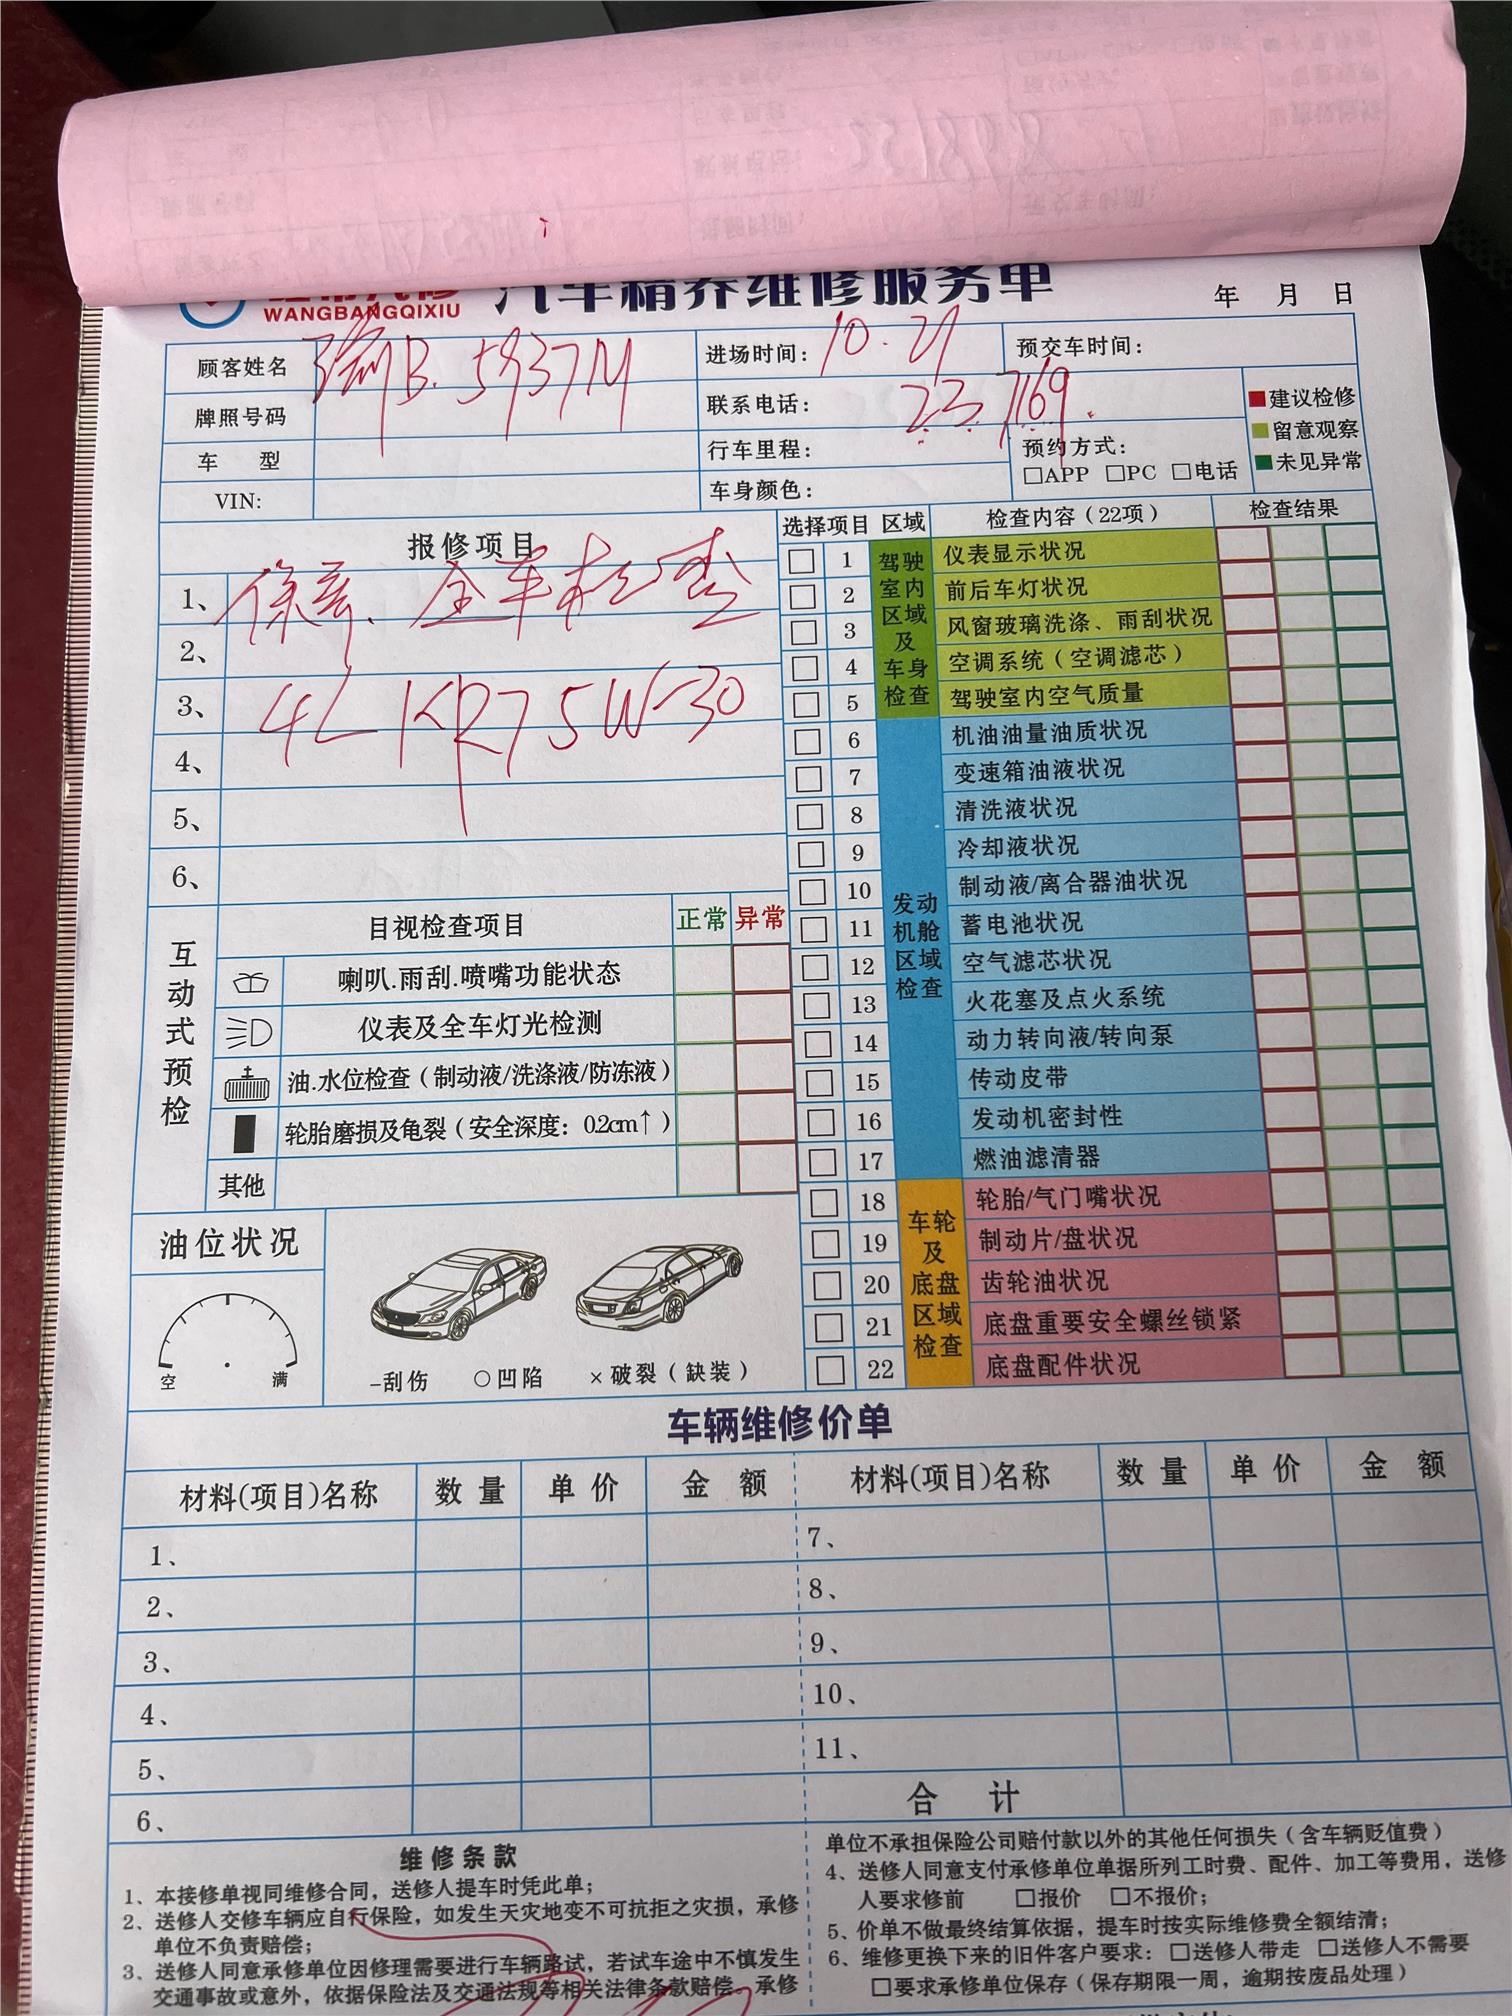 WANGBANGQIXIU 汽车精养维修服务单 年 月 日
顾客姓名 B.5937M 进场时间： 10.21 预交车时间：
牌照号码 联系电话： 237169.
■建议检修
■留意观察
■未见异常
车 型 行车里程： 预约方式：
□APP □PC □电话
VIN: 车身颜色：
报修项目
1、保养、全车检查
2、
3、4L KR7 5W-30
4、
5、
6、
选择项目 区域 检查内容（22项） 检查结果
驾驶室内区域及车身检查
□ 1 仪表显示状况
□ 2 前后车灯状况
□ 3 风窗玻璃洗涤、雨刮状况
□ 4 空调系统（空调滤芯）
□ 5 驾驶室内空气质量
发动机舱区域检查
□ 6 机油油量油质状况
□ 7 变速箱油液状况
□ 8 清洗液状况
□ 9 冷却液状况
□ 10 制动液/离合器油状况
□ 11 蓄电池状况
□ 12 空气滤芯状况
□ 13 火花塞及点火系统
□ 14 动力转向液/转向泵
□ 15 传动皮带
□ 16 发动机密封性
□ 17 燃油滤清器
车轮及底盘区域检查
□ 18 轮胎/气门嘴状况
□ 19 制动片/盘状况
□ 20 齿轮油状况
□ 21 底盘重要安全螺丝锁紧
□ 22 底盘配件状况
互动式预检
目视检查项目 正常 异常
喇叭.雨刮.喷嘴功能状态
仪表及全车灯光检测
油.水位检查（制动液/洗涤液/防冻液）
轮胎磨损及龟裂（安全深度：0.2cm↑）
其他
油位状况
空 满
-刮伤 ○凹陷 ×破裂（缺装）
车辆维修价单
材料(项目)名称 数量 单价 金额 材料(项目)名称 数量 单价 金额
1、 7、
2、 8、
3、 9、
4、 10、
5、 11、
6、 合计
维修条款
1、本接修单视同维修合同，送修人提车时凭此单；
2、送修人交修车辆应自行保险，如发生天灾地变不可抗拒之灾损，承修
单位不负责赔偿；
3、送修人同意承修单位因修理需要进行车辆路试，若试车途中不慎发生
交通事故或意外，依据保险法及交通法规等相关法律条款赔偿。承修
单位不承担保险公司赔付款以外的其他任何损失（含车辆贬值费）
4、送修人同意支付承修单位单据所列工时费、配件、加工等费用，送修
人要求修前 □报价 □不报价；
5、价单不做最终结算依据，提车时按实际维修费全额结清；
6、维修更换下来的旧件客户要求：□送修人带走 □送修人不需要
□要求承修单位保存（保存期限一周，逾期按废品处理）